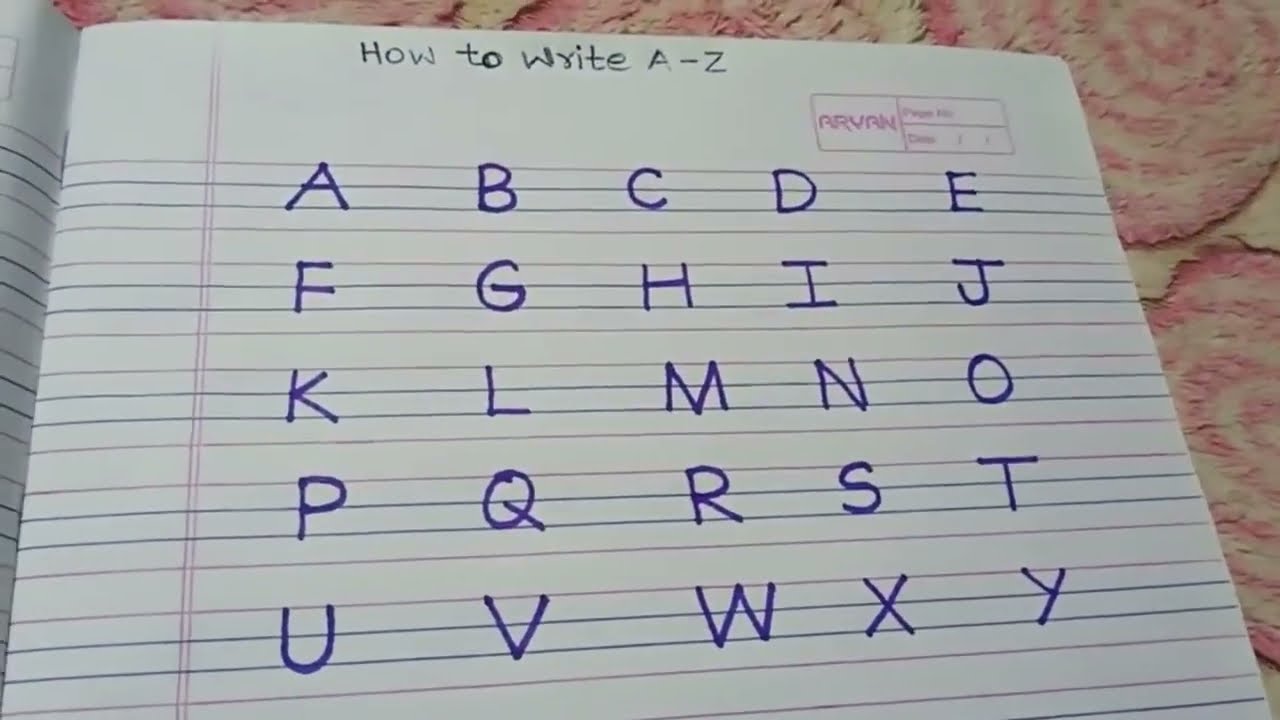 How to Write A-Z
ARYAN
Page No.
Date / /
A B C D E
F G H I J
K L M N O
P Q R S T
U V W X Y